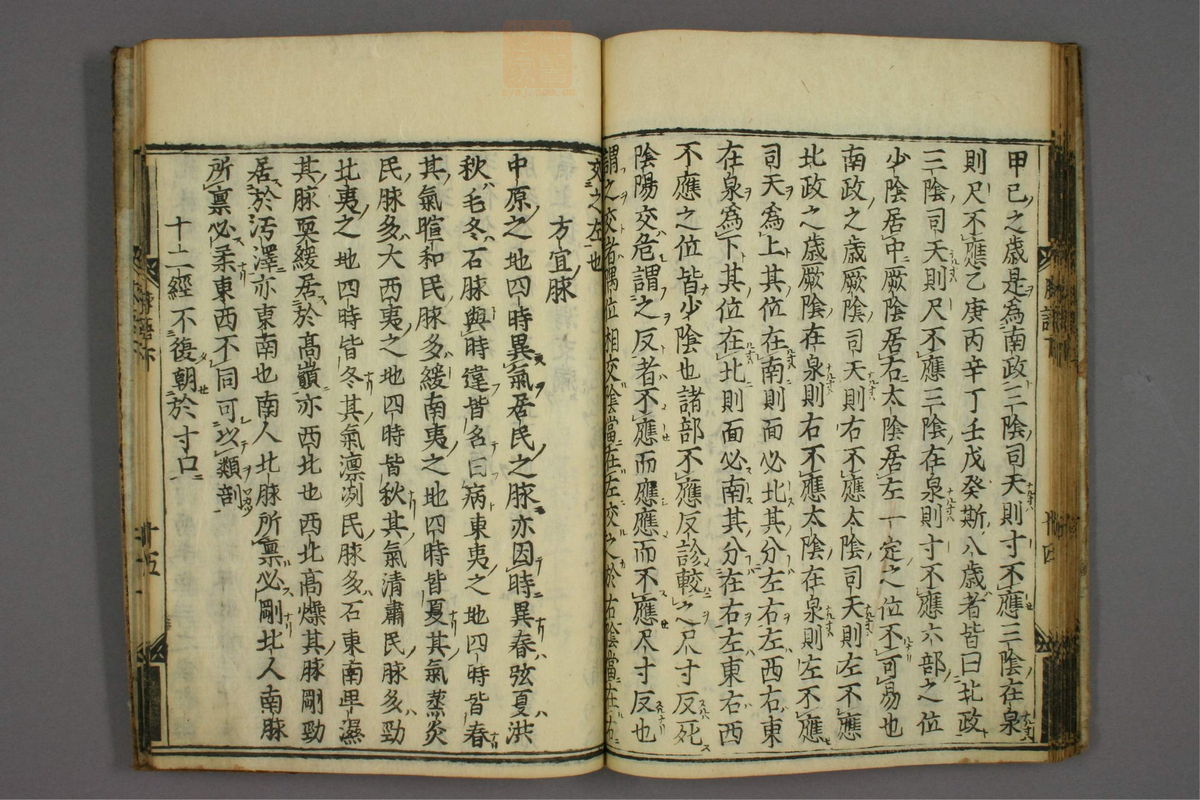 甲已之歳是為南政三陰司天則寸不應三陰在泉
則尺不應乙庚丙辛丁壬戊癸斯八歳者皆曰北政
三陰司天則尺不應三陰在泉則寸不應六部之位
少陰居中厥陰居右太陰居左一定之位不可易也
南政之歳厥陰司天則右不應太陰司天則左不應
北政之歳厥陰在泉則右不應太陰在泉則左不應
司天為上其位在南則面必北其分左右左西右東
在泉為下其位在北則面必南其分在右左東右西
不應之位皆少陰也諸部不應反診較之尺寸反死
陰陽交危謂之反者不應而應應而不應尺寸反也
謂之交者偶位相交陰當在左交之於右陰當在右
交之左也
方宜脉
中原之地四時異氣居民之脉亦因時異春弦夏洪
秋毛冬石脉與時違皆名曰病東夷之地四時皆春
其氣暄和民脉多緩南夷之地四時皆夏其氣蒸炎
民脉多大西夷之地四時皆秋其氣清肅民脉多勁
北夷之地四時皆冬其氣凛冽民脉多石東南卑濕
其脉耎緩居於高巔亦西北也西北高燥其脉剛勁
居於汚澤亦東南也南人北脉所禀必剛北人南脉
所禀必柔東西不同可以類剖
十二經不復朝於寸口
廿五